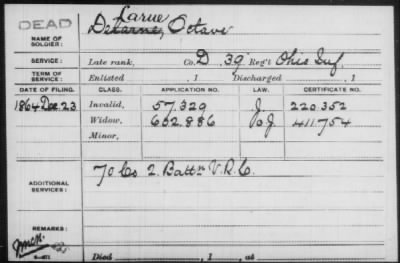 DEAD
Larue
Delarne, Octave
NAME OF SOLDIER:
SERVICE: Late rank, Co. D, 39 Reg't Ohio Inf.
TERM OF SERVICE: Enlisted , 1 Discharged , 1
DATE OF FILING. CLASS. APPLICATION NO. LAW. CERTIFICATE NO.
1864 Dec. 23 Invalid, 57.329 J. 220.352
Widow, 652.886 411.754
Minor,
ADDITIONAL SERVICES: 70 Co 2. Battn V.R.C.
REMARKS:
Died , 1 , at